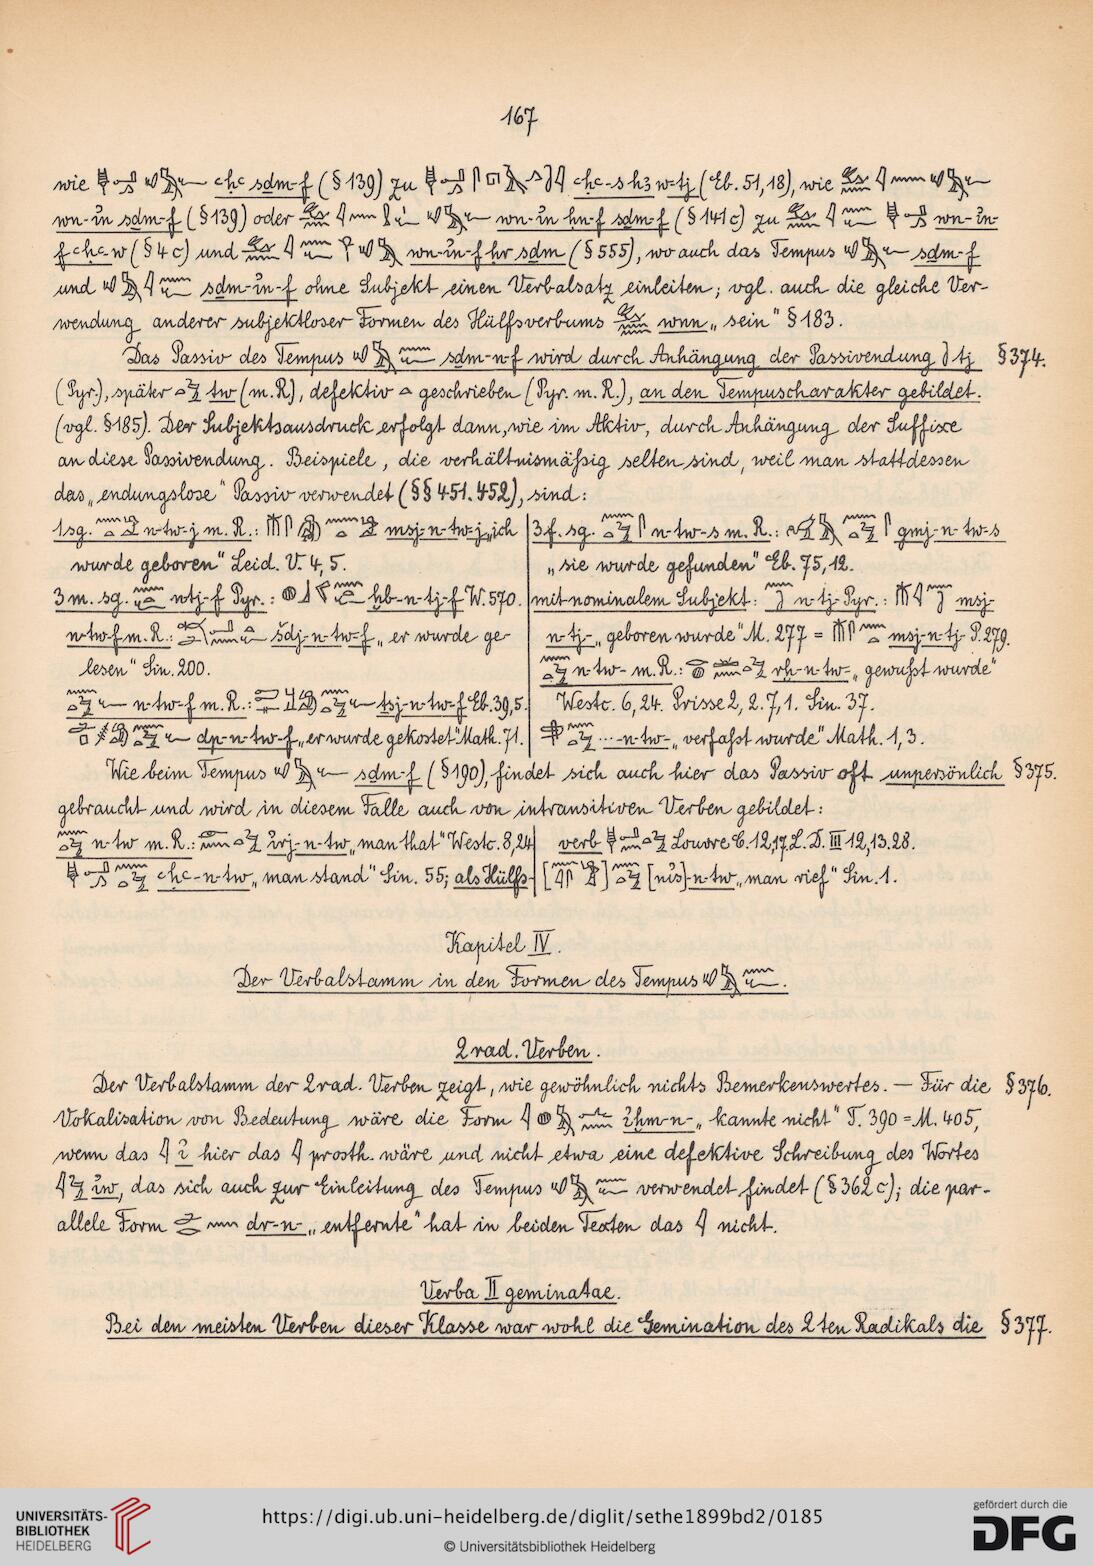 167
wie 𓊢𓂝𓂻 𓄔𓅓𓆑 ꜥḥꜥ sdm-f (§ 139) zu ꜥḥꜥ-s hꜣ w-tj (Eb. 51, 18), wie
wn-ỉn sdm-f (§ 139) oder wn-ỉn ḥn-f sdm-f (§ 141c) zu wn-ỉn-
f ꜥḥꜥ w (§ 4c) und wn-ỉn-f ḥr sdm (§ 555), wo auch das Tempus sdm-f
und sdm-ỉn-f ohne Subjekt einen Verbalsatz einleiten; vgl. auch die gleiche Ver-
wendung anderer subjektloser Formen des Hülfsverbums wnn „sein“ § 183.
Das Passiv des Tempus sdm-n-f wird durch Anhängung der Passivendung tj § 374.
(Pyr.), später tw (m. R.), defektiv geschrieben (Pyr. m. R.), an den Tempuscharakter gebildet.
(vgl. § 185). Der Subjektsausdruck erfolgt dann, wie im Aktiv, durch Anhängung der Suffixe
an diese Passivendung. Beispiele, die verhältnismäßig selten sind, weil man stattdessen
das „endungslose“ Passiv verwendet (§§ 451. 452), sind:
1 sg. n-tw-j m. R.: msj-n-tw-j „ich
wurde geboren“ Leid. V. 4, 5.
3 m. sg. n-tj-f Pyr.: ḫb-n-tj-f W. 570.
n-tw-f m. R.: šdj-n-tw-f „er wurde ge-
lesen“ Sin. 200.
n-tw-f m. R.: tsj-n-tw-f Eb. 39, 5.
dp-n-tw-f „er wurde gekostet“ Math. 71.
3 f. sg. n-tw-s m. R.: gmj-n-tw-s
„sie wurde gefunden“ Eb. 75, 12.
mit nominalem Subjekt: n-tj- Pyr.: msj-
n-tj- „geboren wurde“ M. 277 = msj-n-tj- P. 279.
n-tw- m. R.: rḫ-n-tw- „gewußt wurde“
Westc. 6, 24. Prisse 2, 2. 7, 1. Sin. 37.
...-n-tw- „verfaßt wurde“ Math. 1, 3.
Wie beim Tempus sdm-f (§ 190), findet sich auch hier das Passiv oft unpersönlich § 375.
gebraucht und wird in diesem Falle auch von intransitiven Verben gebildet:
n-tw m. R.: ỉrj-n-tw „man that“ Westc. 8, 24
ꜥḥꜥ-n-tw „man stand“ Sin. 55; als Hülfs-
verb Louvre C. 12, 17. L. D. III 12, 13. 28.
[nỉs]-n-tw „man rief“ Sin. 1.
Kapitel IV.
Der Verbalstamm in den Formen des Tempus
2 rad. Verben.
Der Verbalstamm der 2 rad. Verben zeigt, wie gewöhnlich nichts Bemerkenswertes. — Für die § 376.
Vokalisation von Bedeutung wäre die Form ỉḫm-n- „kannte nicht“ T. 390 = M. 405,
wenn das ỉ hier das prosth. wäre und nicht etwa eine defektive Schreibung des Wortes
ỉw, das sich auch zur Einleitung des Tempus verwendet findet (§ 362c); die par-
allele Form dr-n- „entfernte“ hat in beiden Texten das nicht.
Verba II geminatae.
Bei den meisten Verben dieser Klasse war wohl die Gemination des 2ten Radikals die § 377.
UNIVERSITÄTS-
BIBLIOTHEK
HEIDELBERG
https://digi.ub.uni-heidelberg.de/diglit/sethe1899bd2/0185
© Universitätsbibliothek Heidelberg
gefördert durch die
DFG